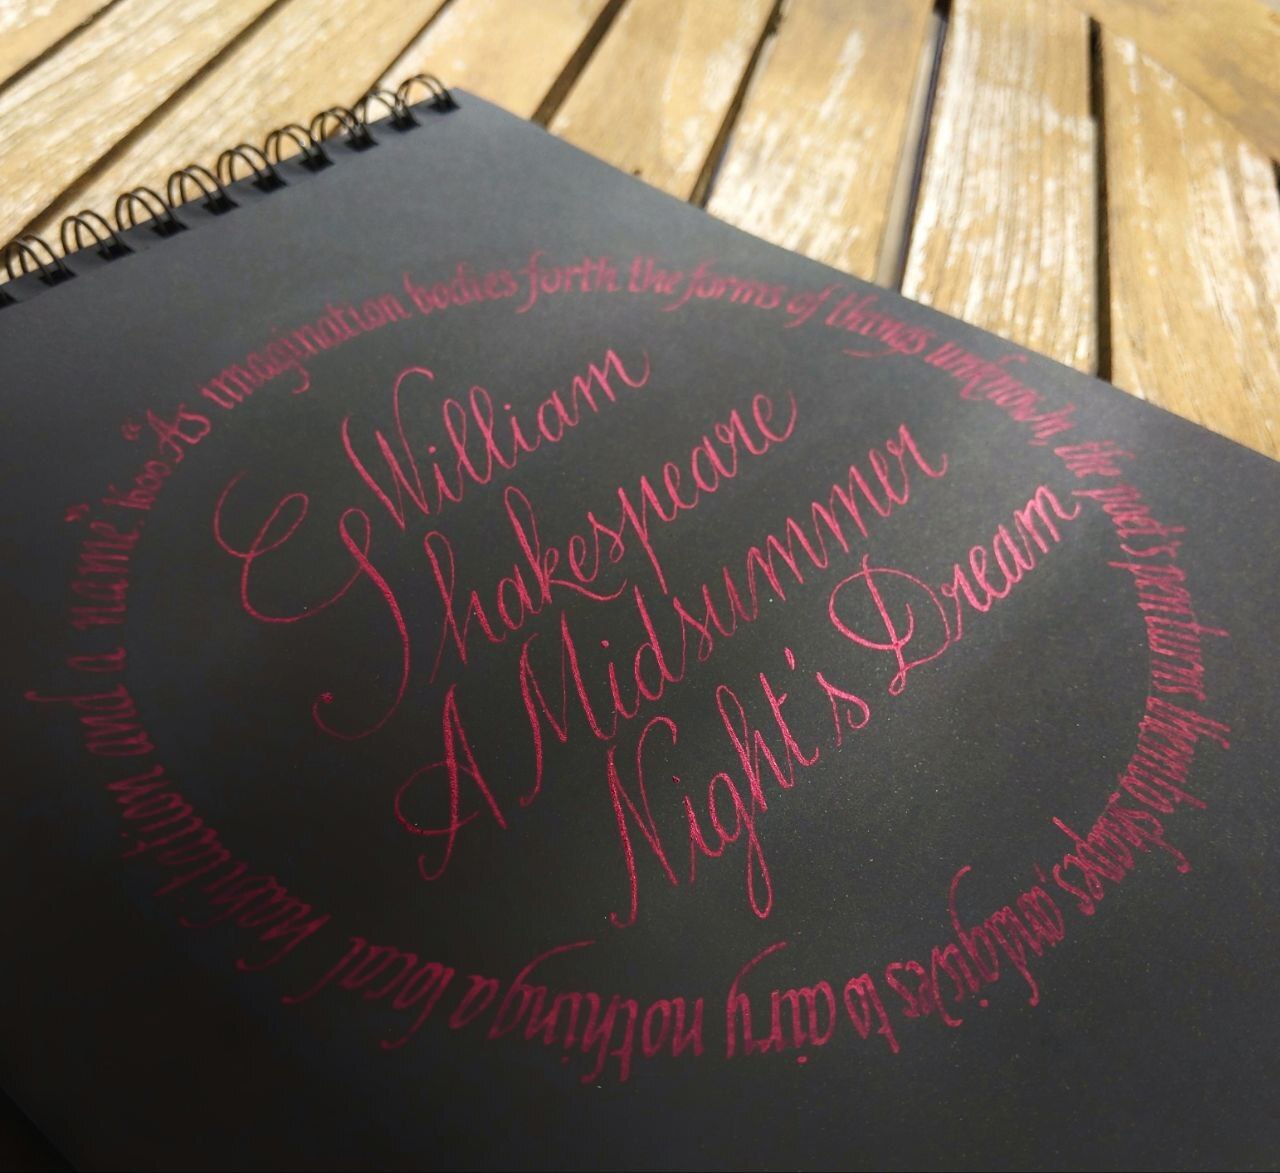 William
Shakespeare
A Midsummer
Night's Dream
“As imagination bodies forth the forms of things unknown, the poet's pen turns them to shapes, and gives to airy nothing a local habitation and a name.” 1600.